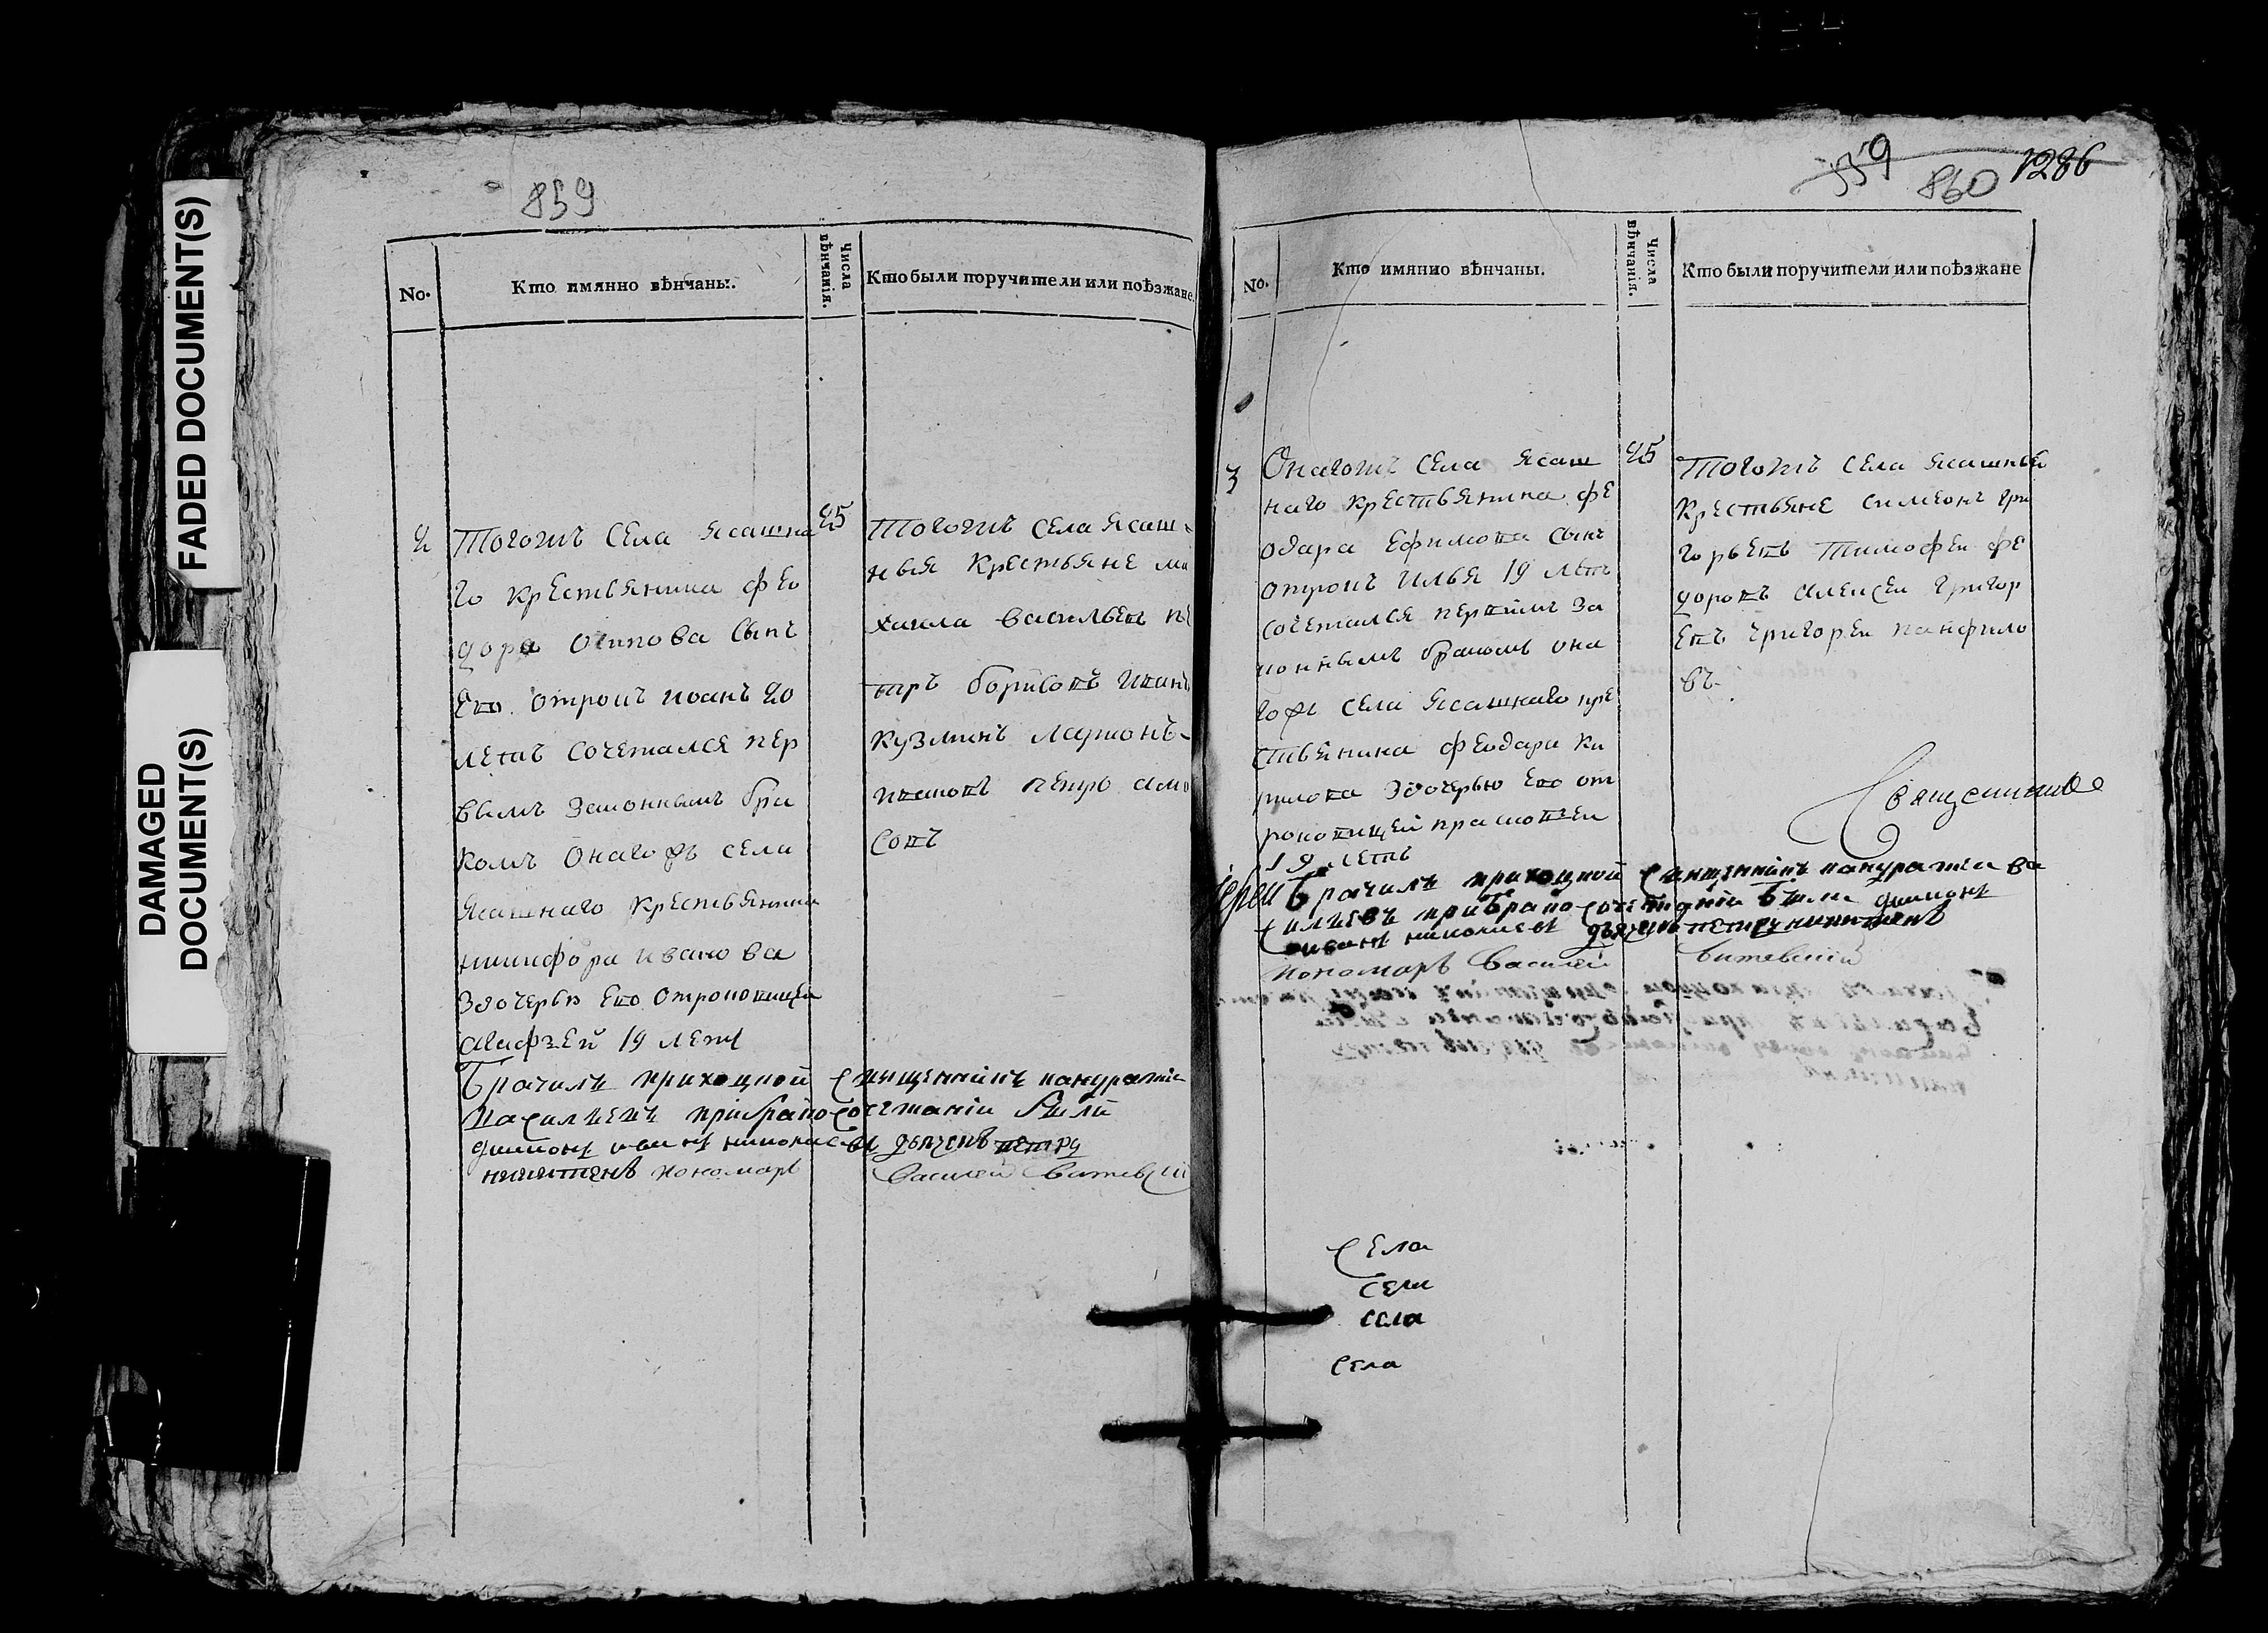 FADED DOCUMENT(S)
DAMAGED
DOCUMENT(S)
859
No.
Кто имянно вѣнчаны.
Числа
вѣнчанія.
Кто были поручители или поѣзжане.
2
Тогожъ села Ясашна
го крестьянина Фео
дора Осипова сынъ
Его отрокъ Иоанъ 20
летъ сочетался пер
вымъ законнымъ бра
комъ онагожъ села
Ясашнаго крестьянина
никифора иванова
здочерью Его отроковицей
19 летъ
25
Тогожъ села Ясаш
ныя крестьяне ми
хаила васильевъ пе
тръ борисовъ иванъ
кузминъ
петръ
совъ
Брачилъ приходской священникъ панкратіи
василіевъ прибрако сочетаніи были
диаконъ иванъ николаевъ дьячекъ петръ
никитинъ пономарь Василей Витевскій
359
860
1286
No.
Кто имянно вѣнчаны.
Числа
вѣнчанія.
Кто были поручители или поѣзжане
3
Онагожъ села Ясаш
наго крестьянина фе
одара Ефимова сынъ
отрокъ Илья 19 летъ
сочетался первымъ за
коннымъ бракомъ она
гожъ села Ясашнаго кре
стьянина феодара Ки
рилова здочерью Его от
роковицей прасковьей
19 летъ
25
Тогожъ села Ясашныя
крестьяне симеонъ гри
горьевъ Тимофеи фе
доровъ алексеи григор
Евъ григореи панфило
въ.
Священник
Іерей Брачилъ приходской священникъ панкратіи ва
силиевъ прибрако сочетаніи были диаконъ
иванъ николаевъ дьячекъ петръ никитинъ
пономарь Василей Витевскій
села
села
села
села